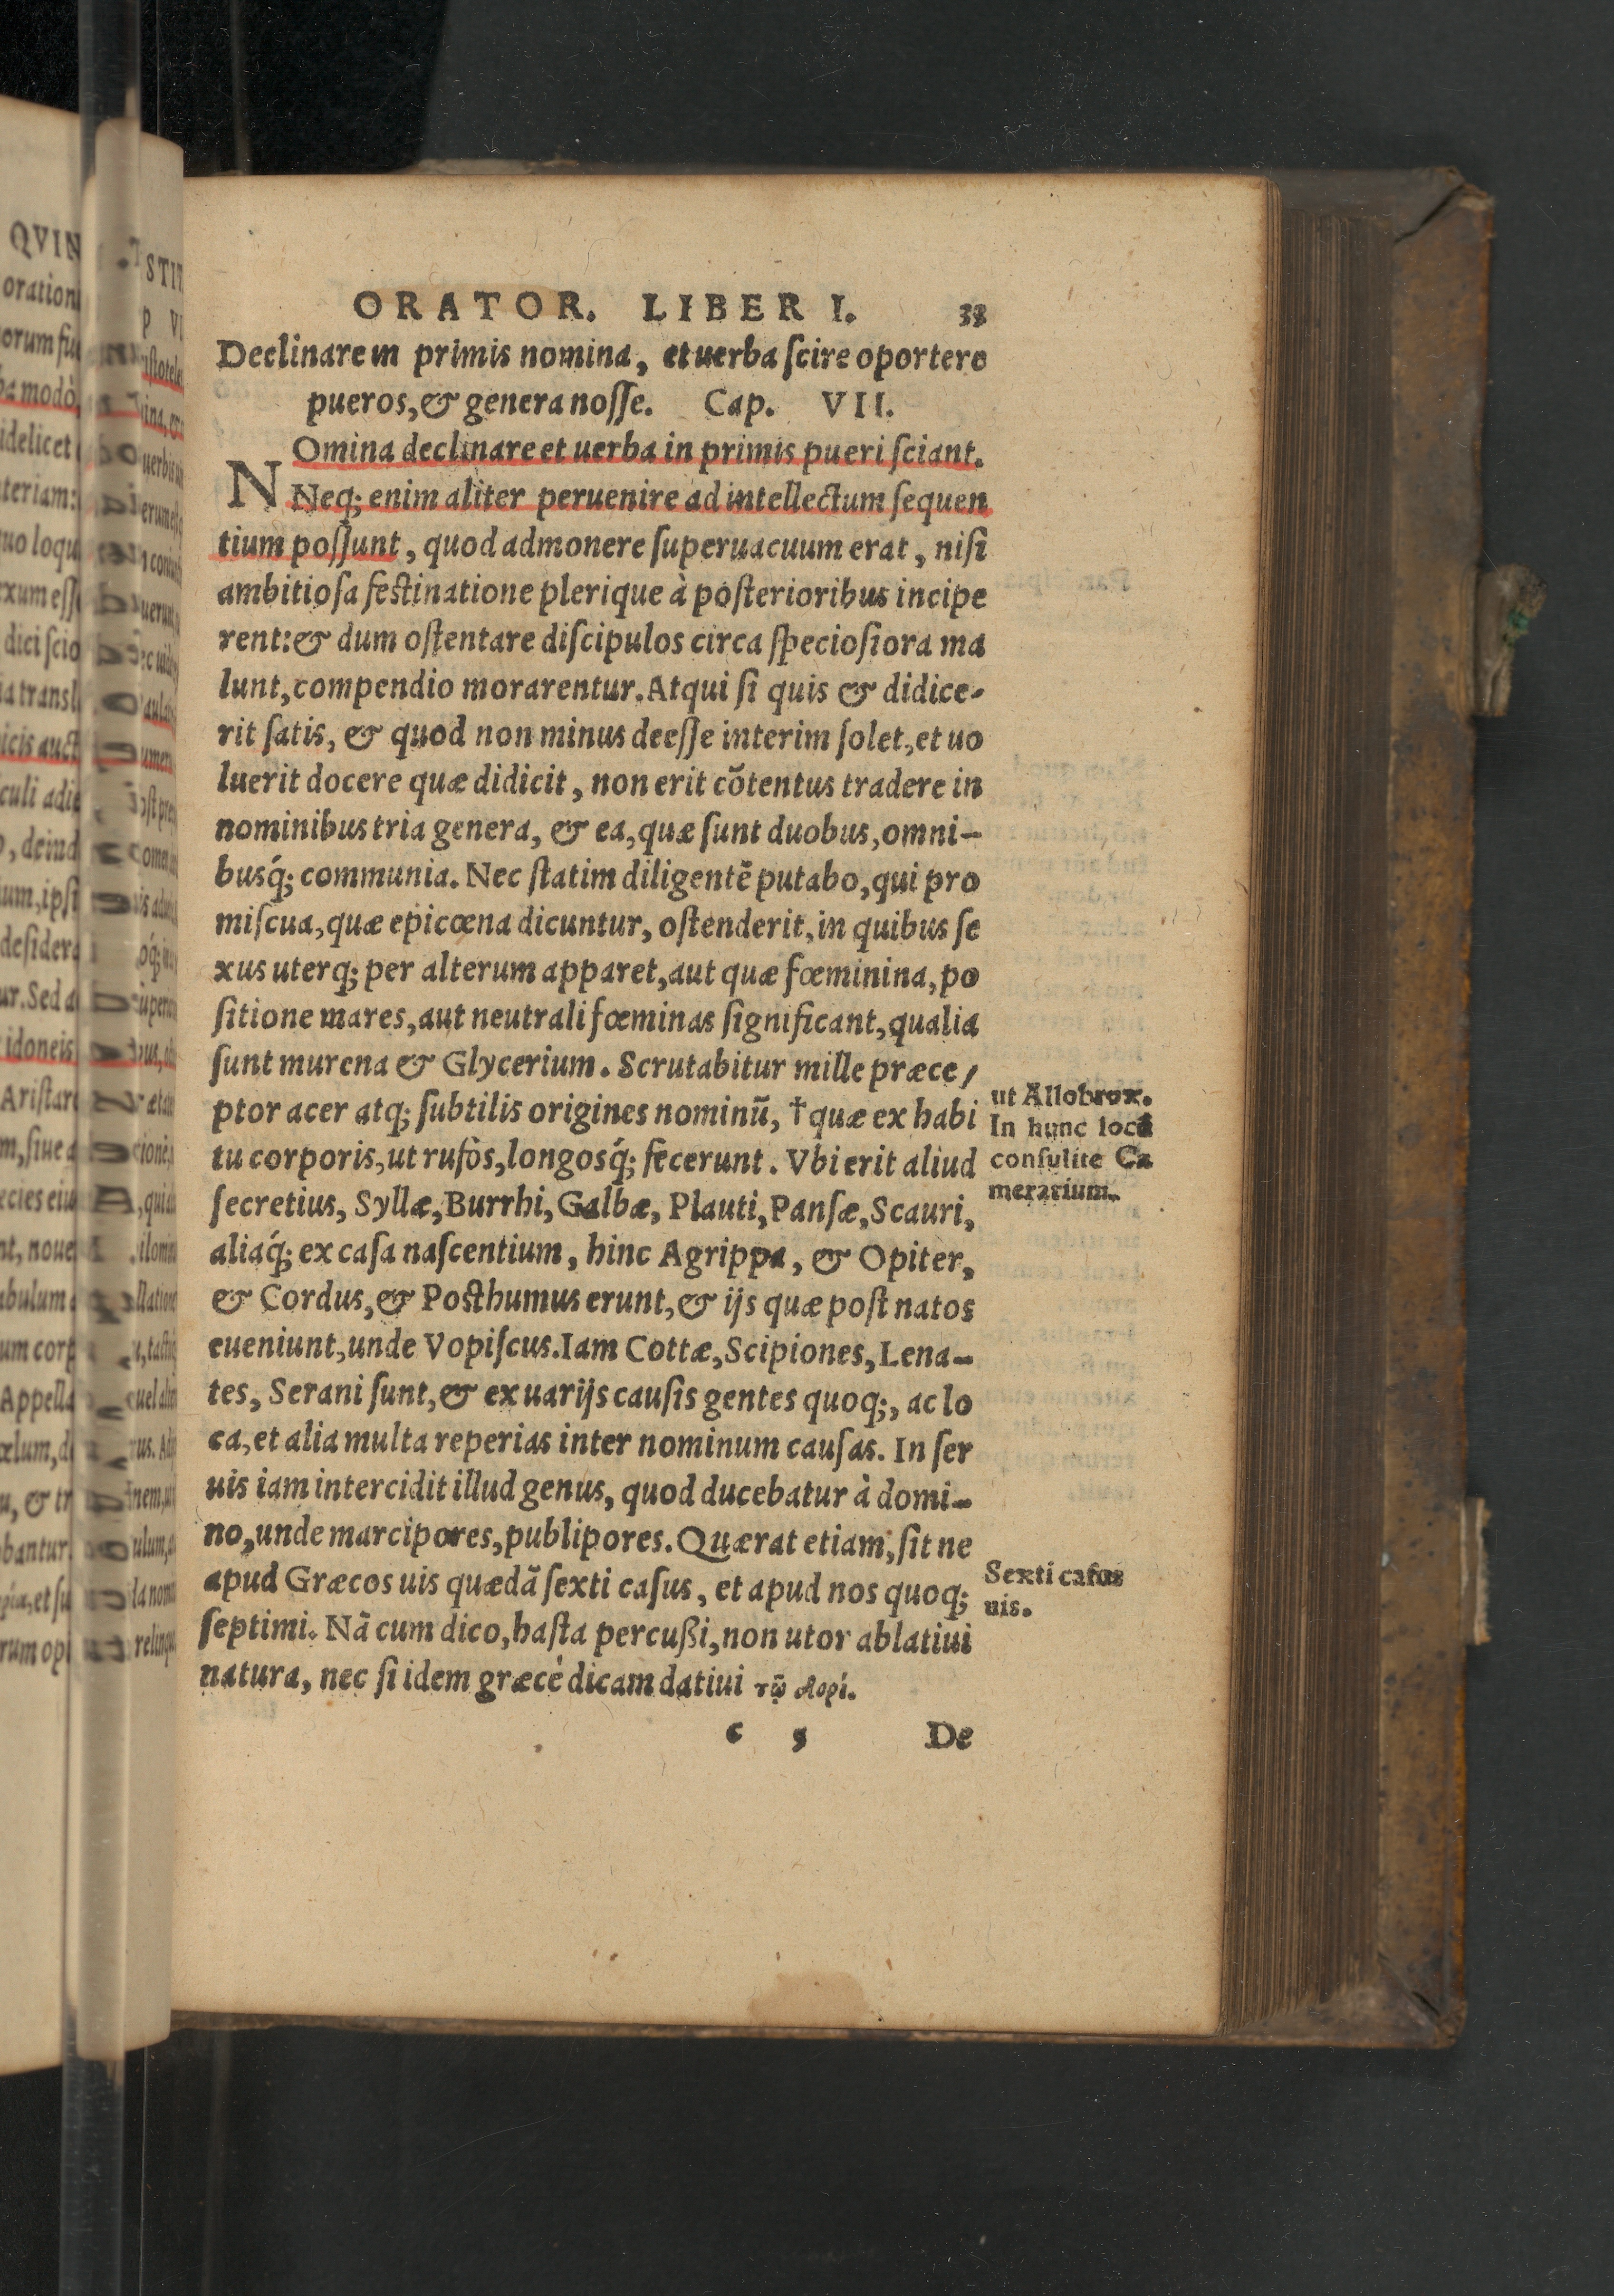 ORATOR. LIBER I. 33
Declinare in primis nomina, et uerba ſcire oportere
pueros, & genera noſſe. Cap. VII.
NOmina declinare et uerba in primis pueri ſciant.
Neq; enim aliter peruenire ad intellectum ſequen
tium poſſunt, quod admonere ſuperuacuum erat, niſi
ambitioſa feſtinatione plerique à poſterioribus incipe
rent: & dum oſtentare diſcipulos circa ſpecioſiora ma
lunt, compendio morarentur. Atqui ſi quis & didice-
rit ſatis, & quod non minus deeſſe interim ſolet, et uo
luerit docere quæ didicit, non erit cõtentus tradere in
nominibus tria genera, & ea, quæ ſunt duobus, omni-
busq́; communia. Nec ſtatim diligentẽ putabo, qui pro
miſcua, quæ epicœna dicuntur, oſtenderit, in quibus ſe
xus uterq; per alterum apparet, aut quæ fœminina, po
ſitione mares, aut neutrali fœminas ſignificant, qualia
ſunt murena & Glycerium. Scrutabitur mille præce/
ptor acer atq; ſubtilis origines nominũ, † quæ ex habi
tu corporis, ut rufòs, longosq́; fecerunt. Vbi erit aliud
ſecretius, Syllæ, Burrhi, Galbæ, Plauti, Panſæ, Scauri,
aliaq́; ex caſa naſcentium, hinc Agrippa, & Opiter,
& Cordus, & Poſthumus erunt, & ijs quæ poſt natos
eueniunt, unde Vopiſcus. Iam Cottæ, Scipiones, Lena-
tes, Serani ſunt, & ex uarijs cauſis gentes quoq;, ac lo
ca, et alia multa reperias inter nominum cauſas. In ſer
uis iam intercidit illud genus, quod ducebatur à domi-
no, unde marcipores, publipores. Quærat etiam, ſit ne
apud Græcos uis quædã ſexti caſus, et apud nos quoq;
ſeptimi. Nã cum dico, haſta percußi, non utor ablatiui
natura, nec ſi idem græcè dicam datiui τῷ δορί.
c 5 De
ut Allobrox.
In hunc locũ
conſulite Ca
merarium.
Sexti caſus
uis.